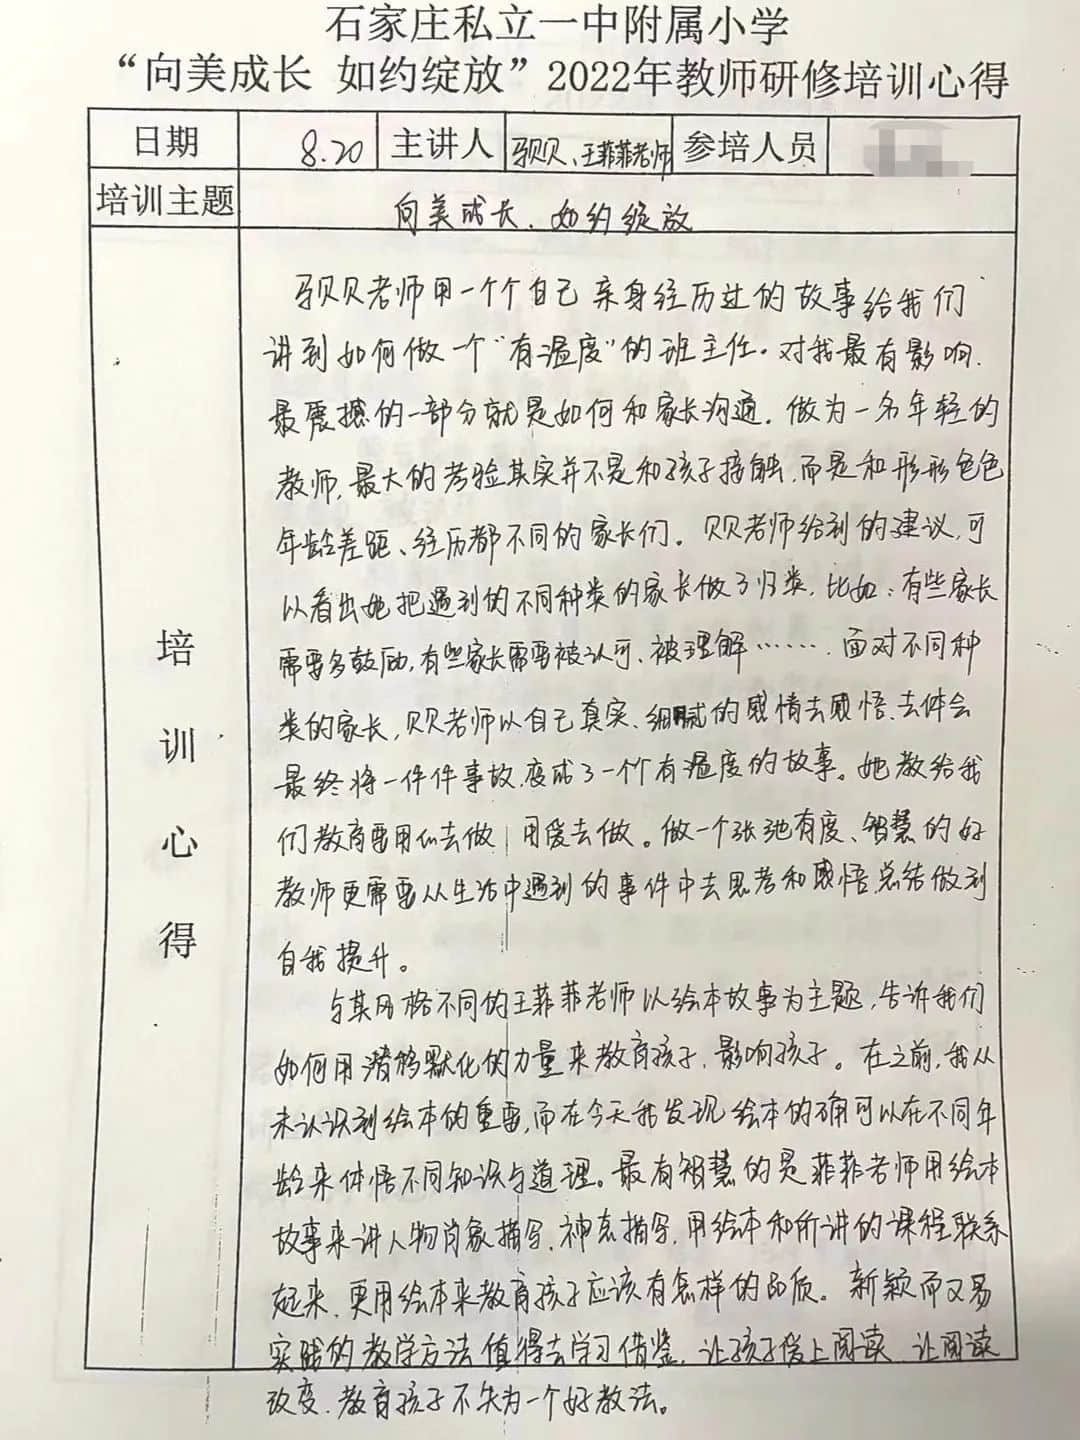 石家庄私立一中附属小学
“向美成长 如约绽放”2022年教师研修培训心得
日期 8.20 主讲人 贝贝、王菲菲老师 参培人员
培训主题 向美成长、如约绽放
培训心得
贝贝老师用一个个自己亲身经历过的故事给我们
讲到如何做一个“有温度”的班主任。对我最有影响、
最震撼的一部分就是如何和家长沟通。做为一名年轻的
教师,最大的考验其实并不是和孩子接触,而是和形形色色
年龄差距、经历都不同的家长们。贝贝老师给到的建议,可
以看出她把遇到的不同种类的家长做了归类,比如:有些家长
需要多鼓励,有些家长需要被认可、被理解……,面对不同种
类的家长,贝贝老师以自己真实、细腻的感情去感悟、去体会
最终将一件件事故,变成了一个个有温度的故事。她教给我
们教育要用心去做,用爱去做。做一个张弛有度、智慧的好
教师更需要从生活中遇到的事件中去思考和感悟,总结做到
自我提升。
与其风格不同的王菲菲老师以绘本故事为主题,告诉我们
如何用潜移默化的力量来教育孩子,影响孩子。在之前,我从
未认识到绘本的重要,而在今天我发现绘本的确可以在不同年
龄来体悟不同知识与道理。最有智慧的是菲菲老师用绘本
故事来讲人物肖象描写、神态描写,用绘本和所讲的课程联系
起来,更用绘本来教育孩子应该有怎样的品质。新颖而又易
实践的教学方法值得去学习借鉴,让孩子爱上阅读,让阅读
改变、教育孩子不失为一个好教法。